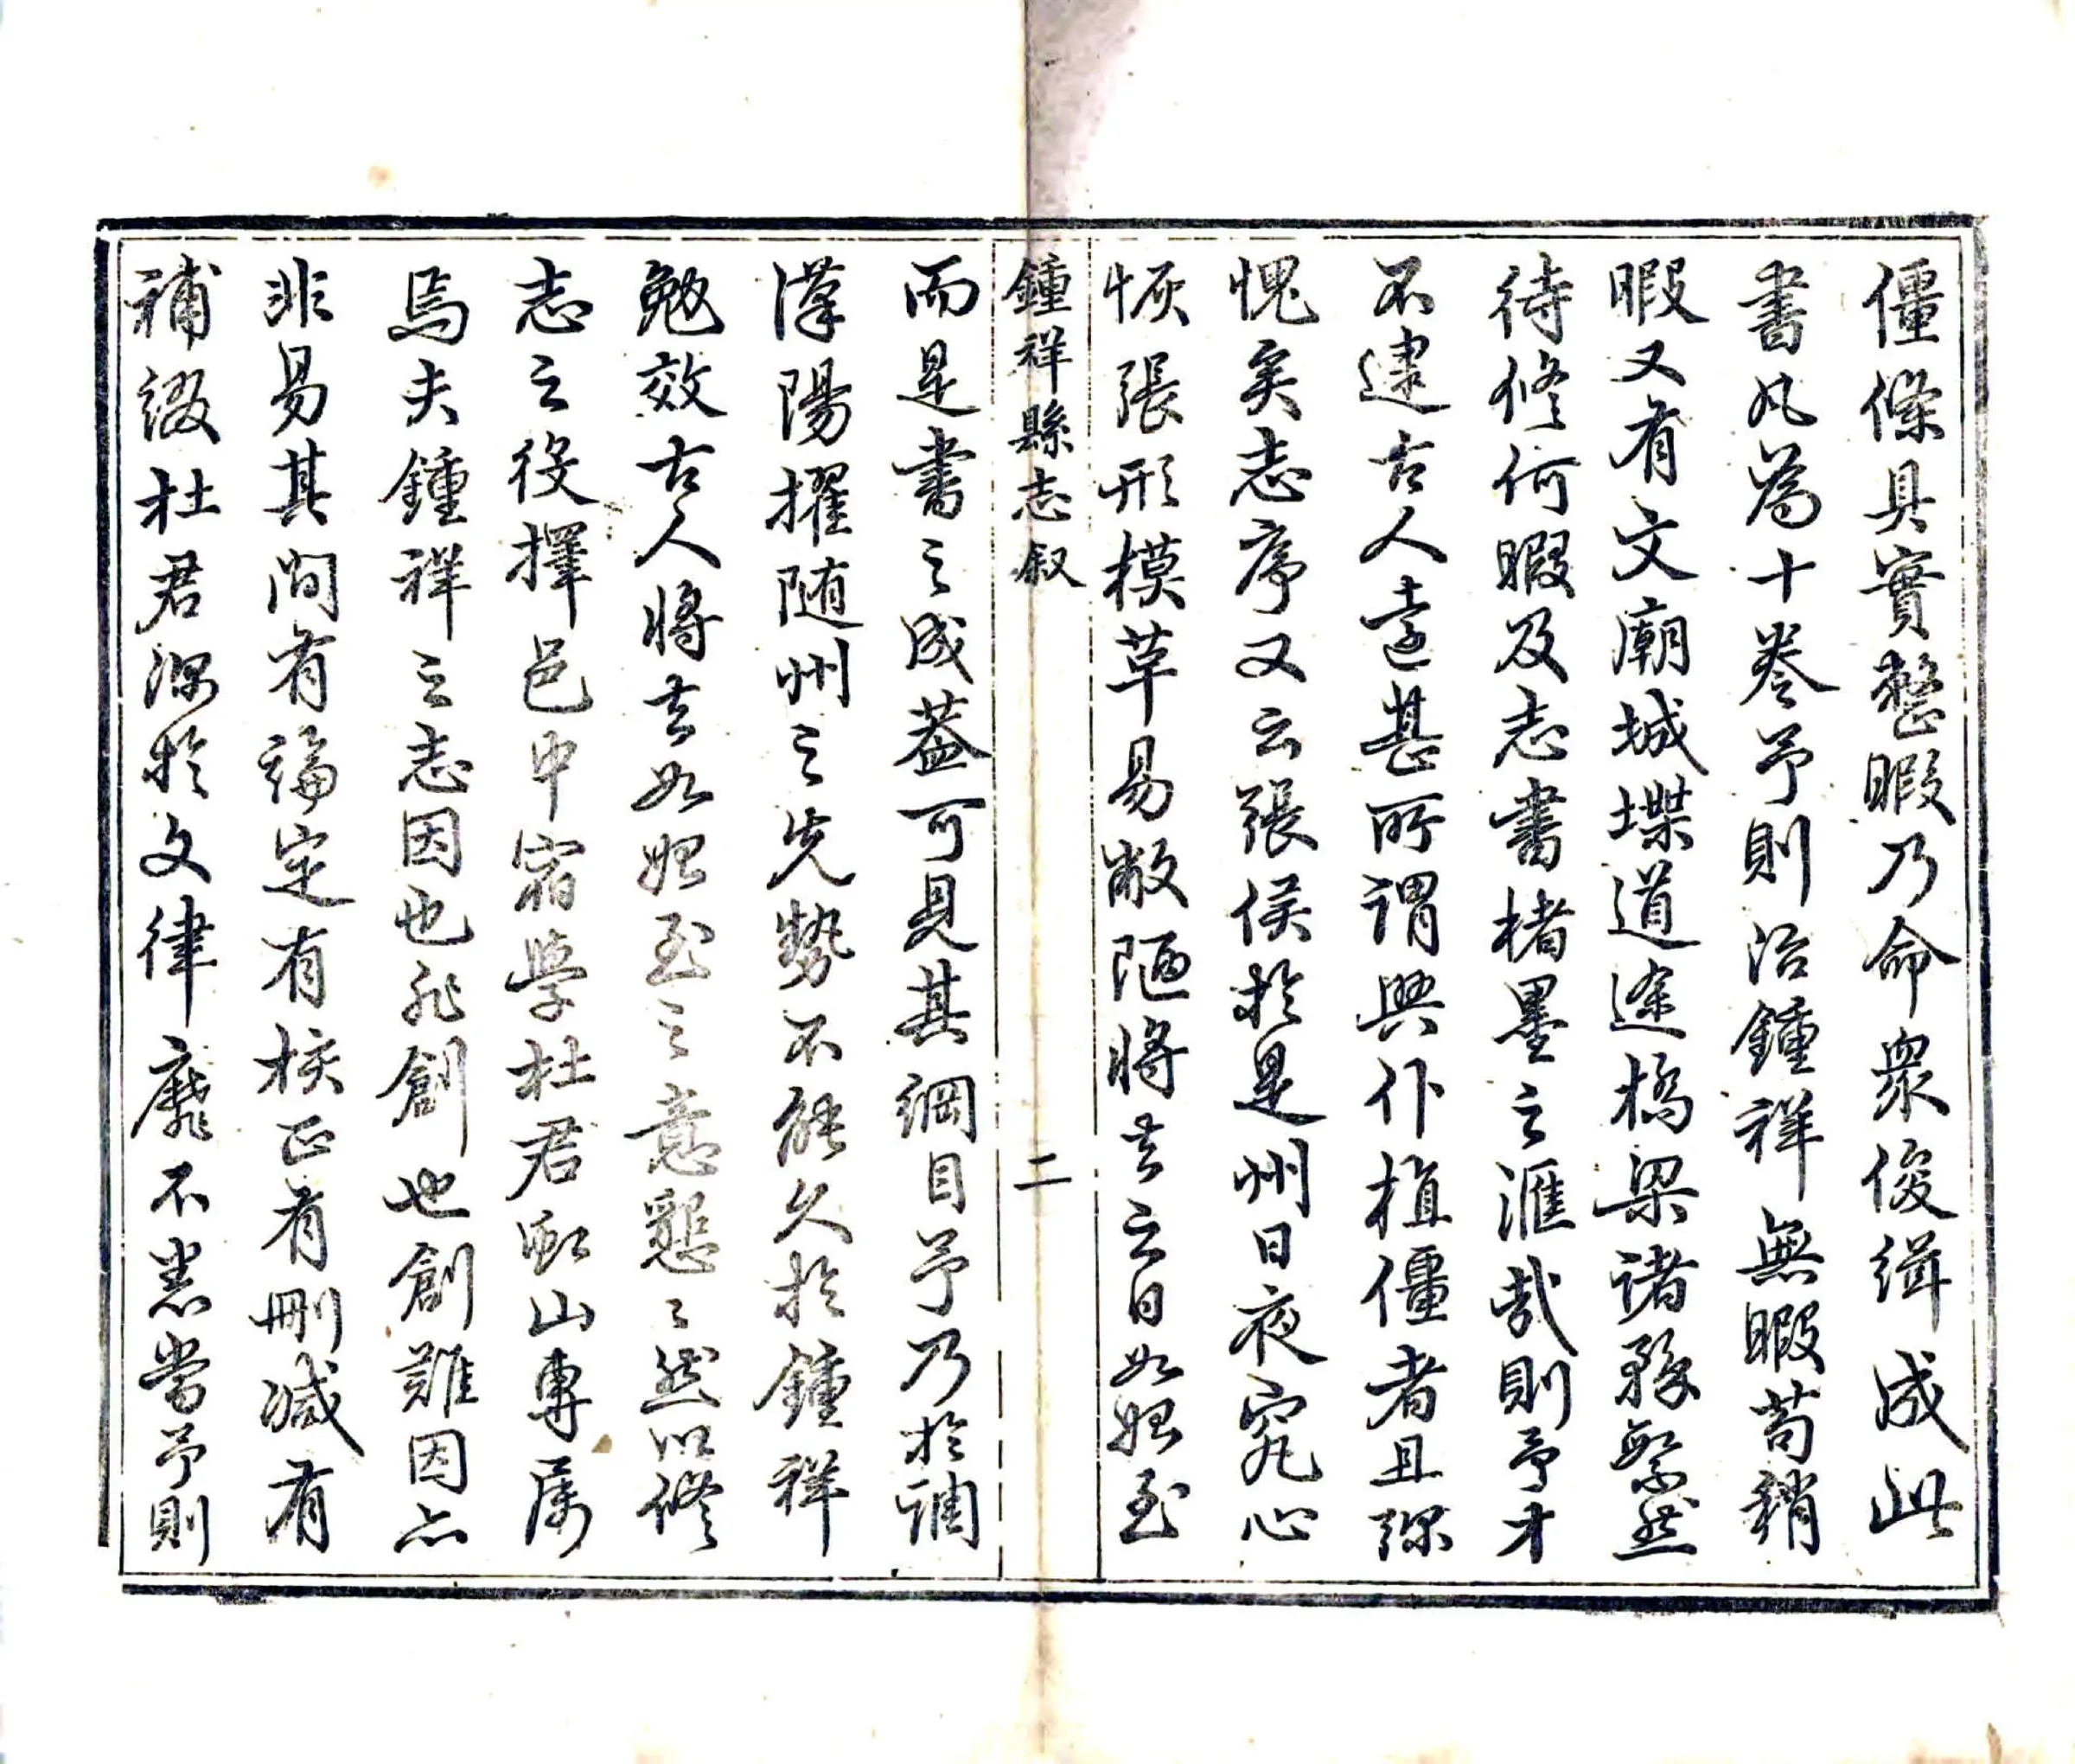 僵條具實整暇乃命衆俊緝成此
書凡為十卷予則治鍾祥無暇苟稍
暇又有文廟城堞道途橋梁諸務繁然
待修何暇及志書楮墨之滙哉則予才
不逮古人遠甚所謂興仆植僵者且深
愧矣志序又云張侯於是州日夜究心
恢張形模草易敝陋將去云日如始至
鍾祥縣志叙 二
而是書之成葢可見其綱目予乃於調
漢陽擢随州之先勢不能久於鍾祥
勉效古人將去如始至之意懇〻然以修
志之役擇邑中宿學杜君 山專属
焉夫鍾祥之志因也非創也創難因亦
非易其間有論定有核正有刪減有
補綴杜君深於文律靡不悉當予則